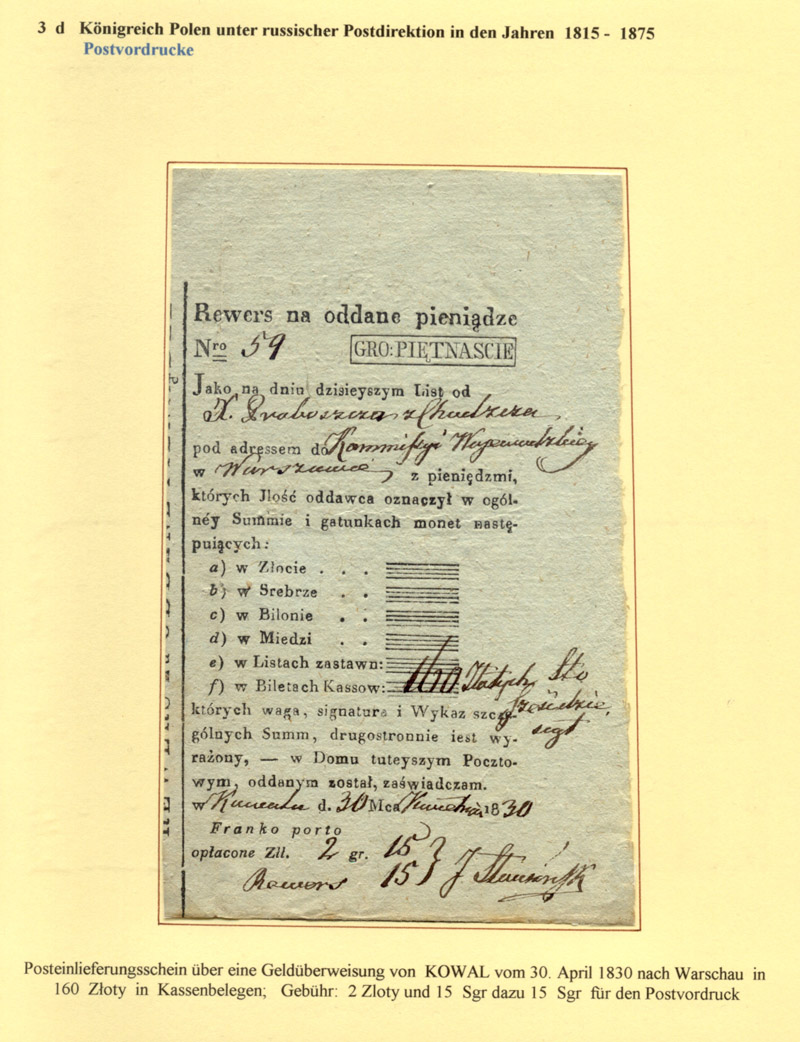 3 d Königreich Polen unter russischer Postdirektion in den Jahren 1815 - 1875
Postvordrucke
Rewers na oddane pieniądze
Nro 59 GRO: PIĘTNASCIE
Jako na dniu dzisieyszym List od
X. Proboszcza z Chodecza
pod adressem do Kommissyi Wojewodzkiey
w Warszawie z pieniędzmi,
których Jlość oddawca oznaczył w ogól-
néy Summie i gatunkach monet nastę-
puiących:
a) w Złocie . . .
b) w Srebrze . .
c) w Bilonie . .
d) w Miedzi . .
e) w Listach zastawn:
f) w Biletach Kassow: 160 Złotych Sto
których waga, signatura i Wykaz szcze- sześćdzie
gólnych Summ, drugostronnie iest wy- siąt
rażony, — w Domu tuteyszym Poczto-
wym, oddanym został, zaświadczam.
w d. 30 Mca Kwietnia 1830
Franko porto
opłacone Zll. 2 gr. 15
Rewers 15 J.
Posteinlieferungsschein über eine Geldüberweisung von KOWAL vom 30. April 1830 nach Warschau in
160 Złoty in Kassenbelegen; Gebühr: 2 Zloty und 15 Sgr dazu 15 Sgr für den Postvordruck